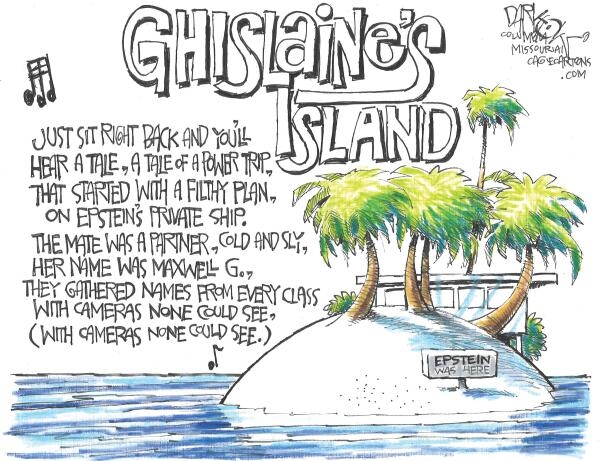 GHISLAINE'S
ISLAND
DARKOW
COLUMBIA
MISSOURIAN
CAGLECARTONS
.COM
JUST SIT RIGHT BACK AND YOU'LL
HEAR A TALE, A TALE OF A POWER TRIP,
THAT STARTED WITH A FILTHY PLAN,
ON EPSTEIN'S PRIVATE SHIP.
THE MATE WAS A PARTNER, COLD AND SLY,
HER NAME WAS MAXWELL G.,
THEY GATHERED NAMES FROM EVERY CLASS
WITH CAMERAS NONE COULD SEE,
(WITH CAMERAS NONE COULD SEE.)
EPSTEIN
WAS HERE